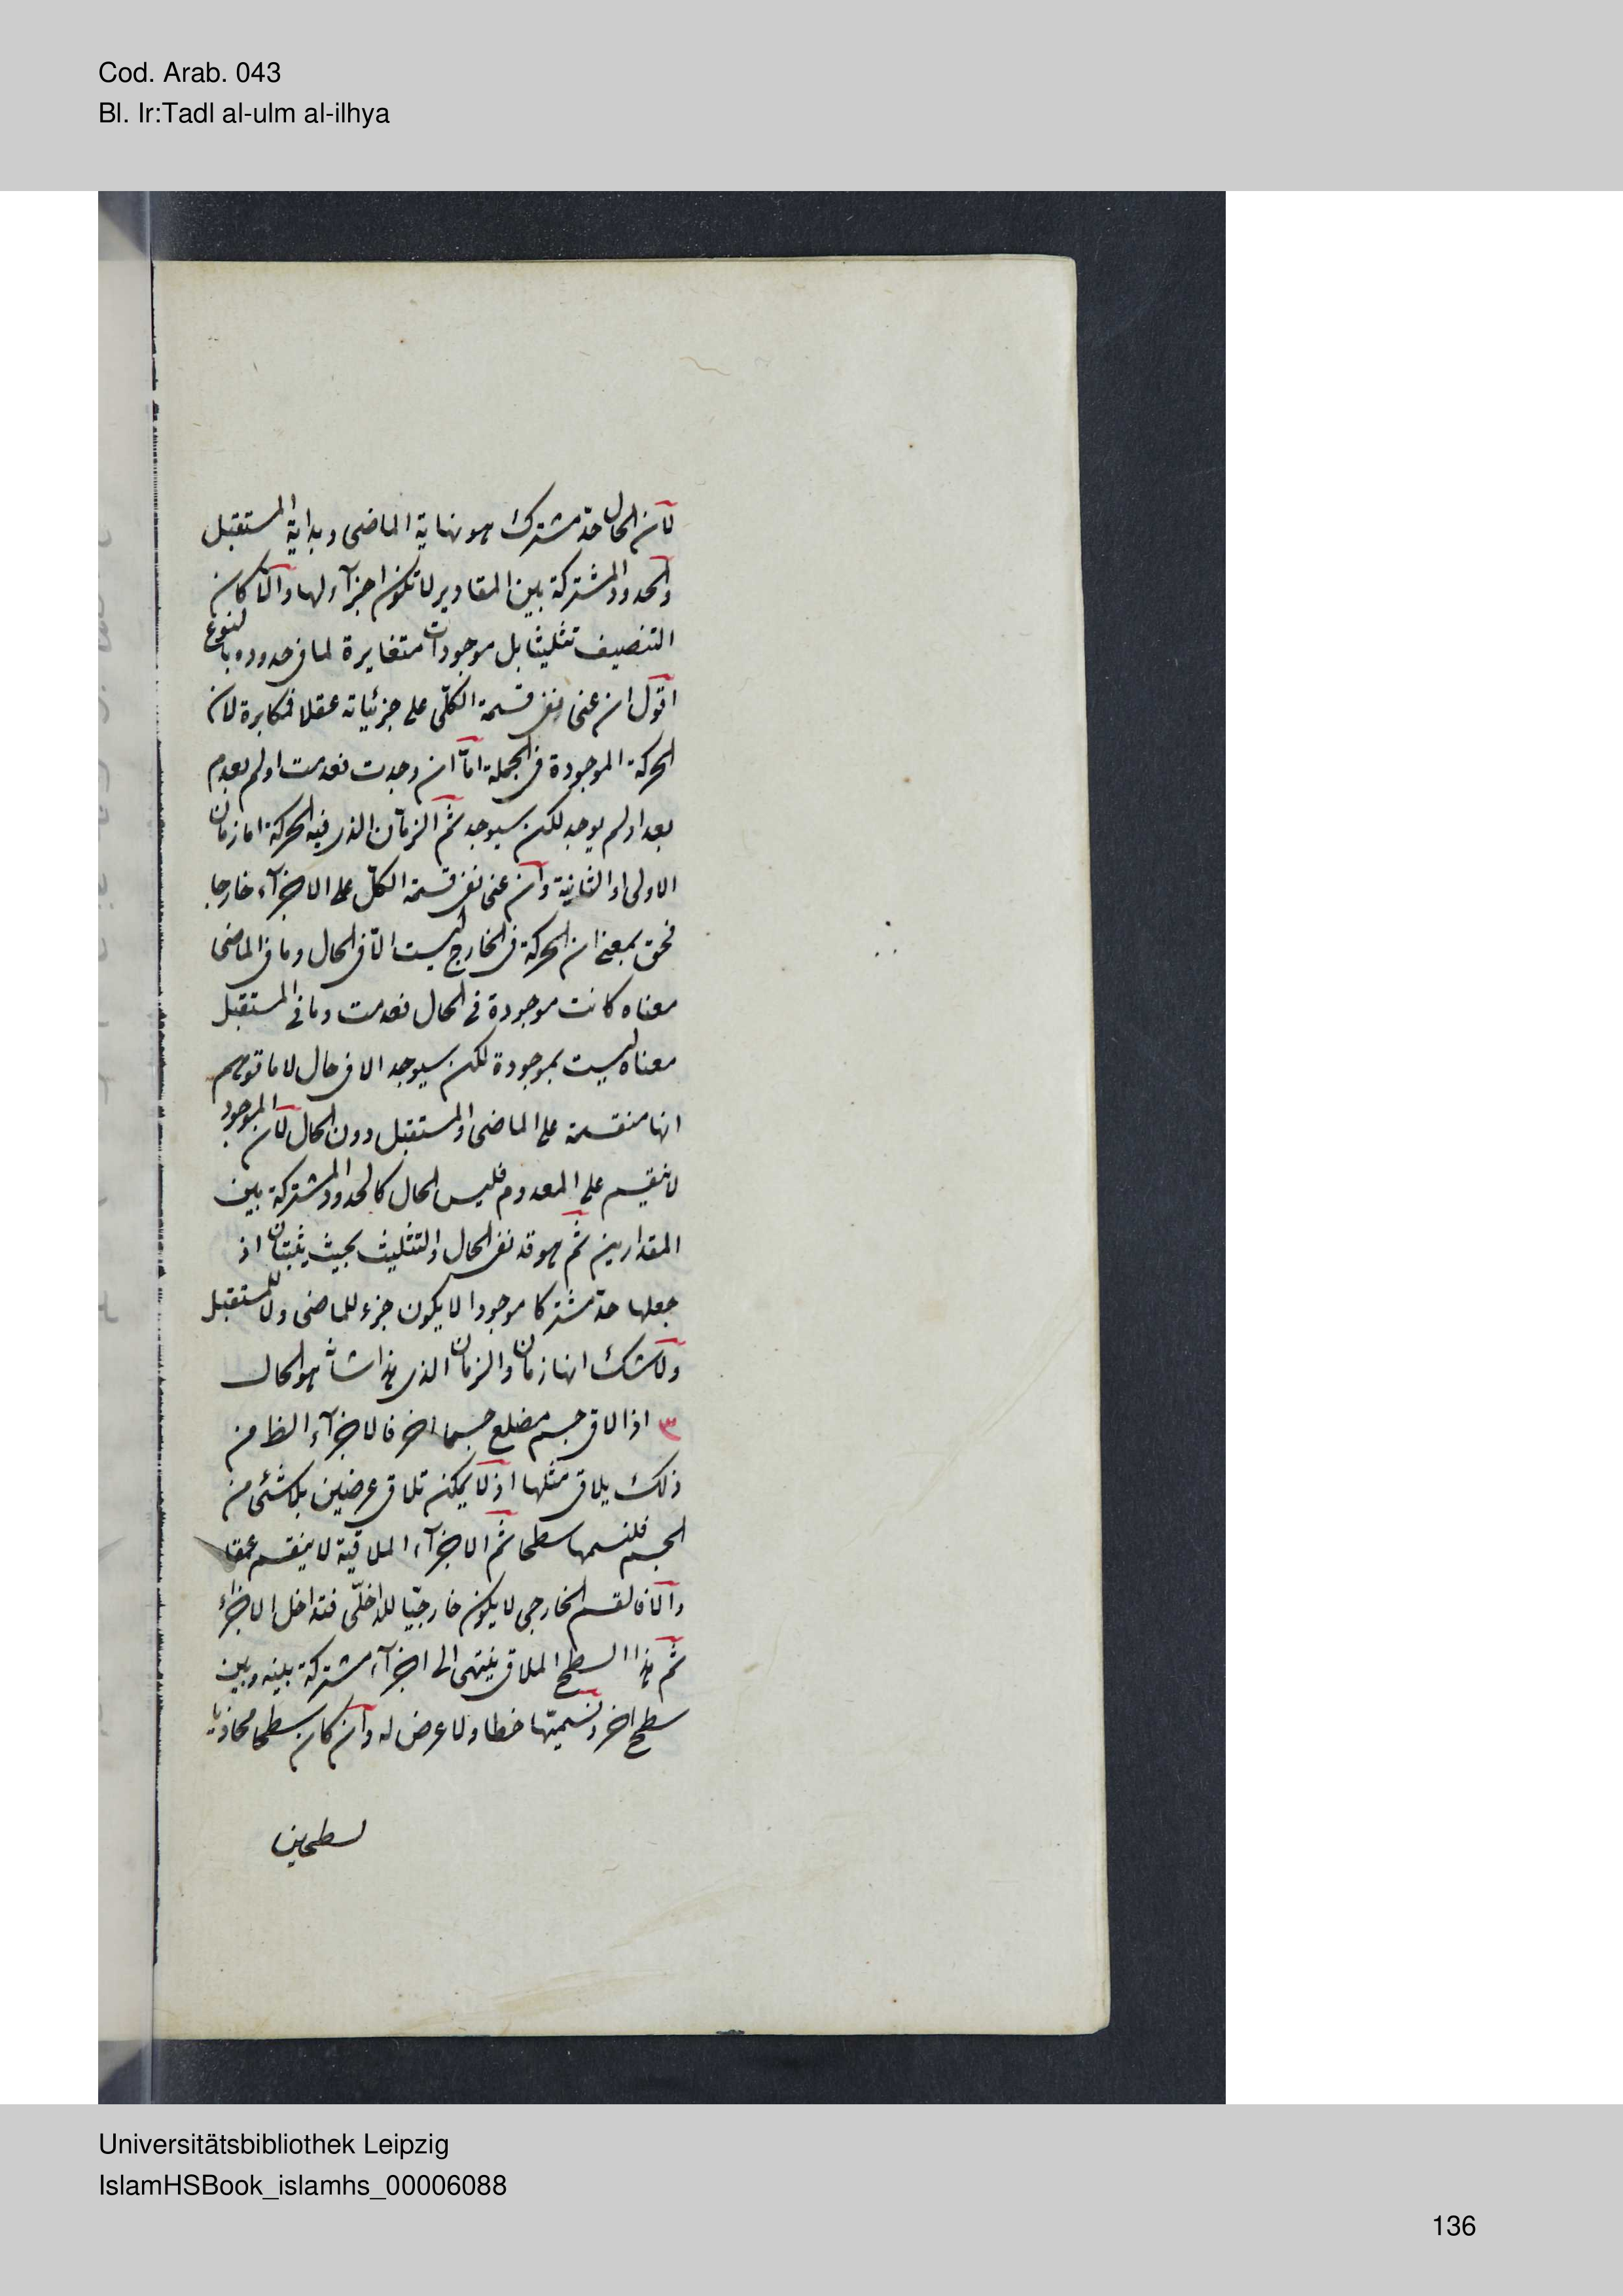 Cod. Arab. 043
Bl. Ir:Tadl al-ulm al-ilhya
لان الحال حد مشترك هو نهاية الماضى وبداية المستقبل
والحدود المشتركة بين المقادير لا تكون اجزآء لها والّا كان
التنصيف تثليثا بل موجودات متغايرة لما فى حدوده بالنوع
اقول ان عنى نفى قسمة الكلّى على جزئياته عقلا فمكابرة لان
الحركة الموجودة فى الجملة امّا ان وجدت فعدمت اولم يعدم
بعد اولم يوجد لكن سيوجد ثم الزمان الذى فيه الحركة اما زمان
الاولى او الثانية وان عنى نفى قسمة الكلّ على الاجزآء خارجا
فحق بمعنى ان الحركة فى الخارج ليست الّا فى الحال وما فى الماضى
معناه كانت موجودة فى الحال فعدمت وما فى المستقبل
معناه ليست بموجودة لكن سيوجد الا فى حال لا ما توهم
انها منقسمة على الماضى والمستقبل دون الحال لان الموجود
لا ينقسم على المعدوم فليس الحال كالحدود المشتركة بين
المقدارين ثم هو قد نفى الحال والتثليث بحيث يثبتان اذ
جعلها حدّ مشتركا موجودا لا يكون جزء للماضى ولا للمستقبل
ولا شك انها زمان والزمان الذى هذا شانه هو الحال
٣ اذا لاقى جسم مضلع جسما اخر فالاجزآء الظا من
ذلك يلاقى مثلها اذ لا يمكن تلاقى عرضين بلا شئ من
الجسم فلنسمها سطحا ثم الاجزآء الملاقية لا ينقسم عمقا
والّا فالقسم الخارجى لا يكون خارجيّا للداخلّى فتداخل الاجزاء
ثم هذا السطح الملاقى ينتهى الى اجزآء مشتركة بينه وبين
سطح اخر ونسميتها خطا ولا عرض له وان كان سطحا محاذيا
لسطحين
Universitätsbibliothek Leipzig
IslamHSBook_islamhs_00006088
136